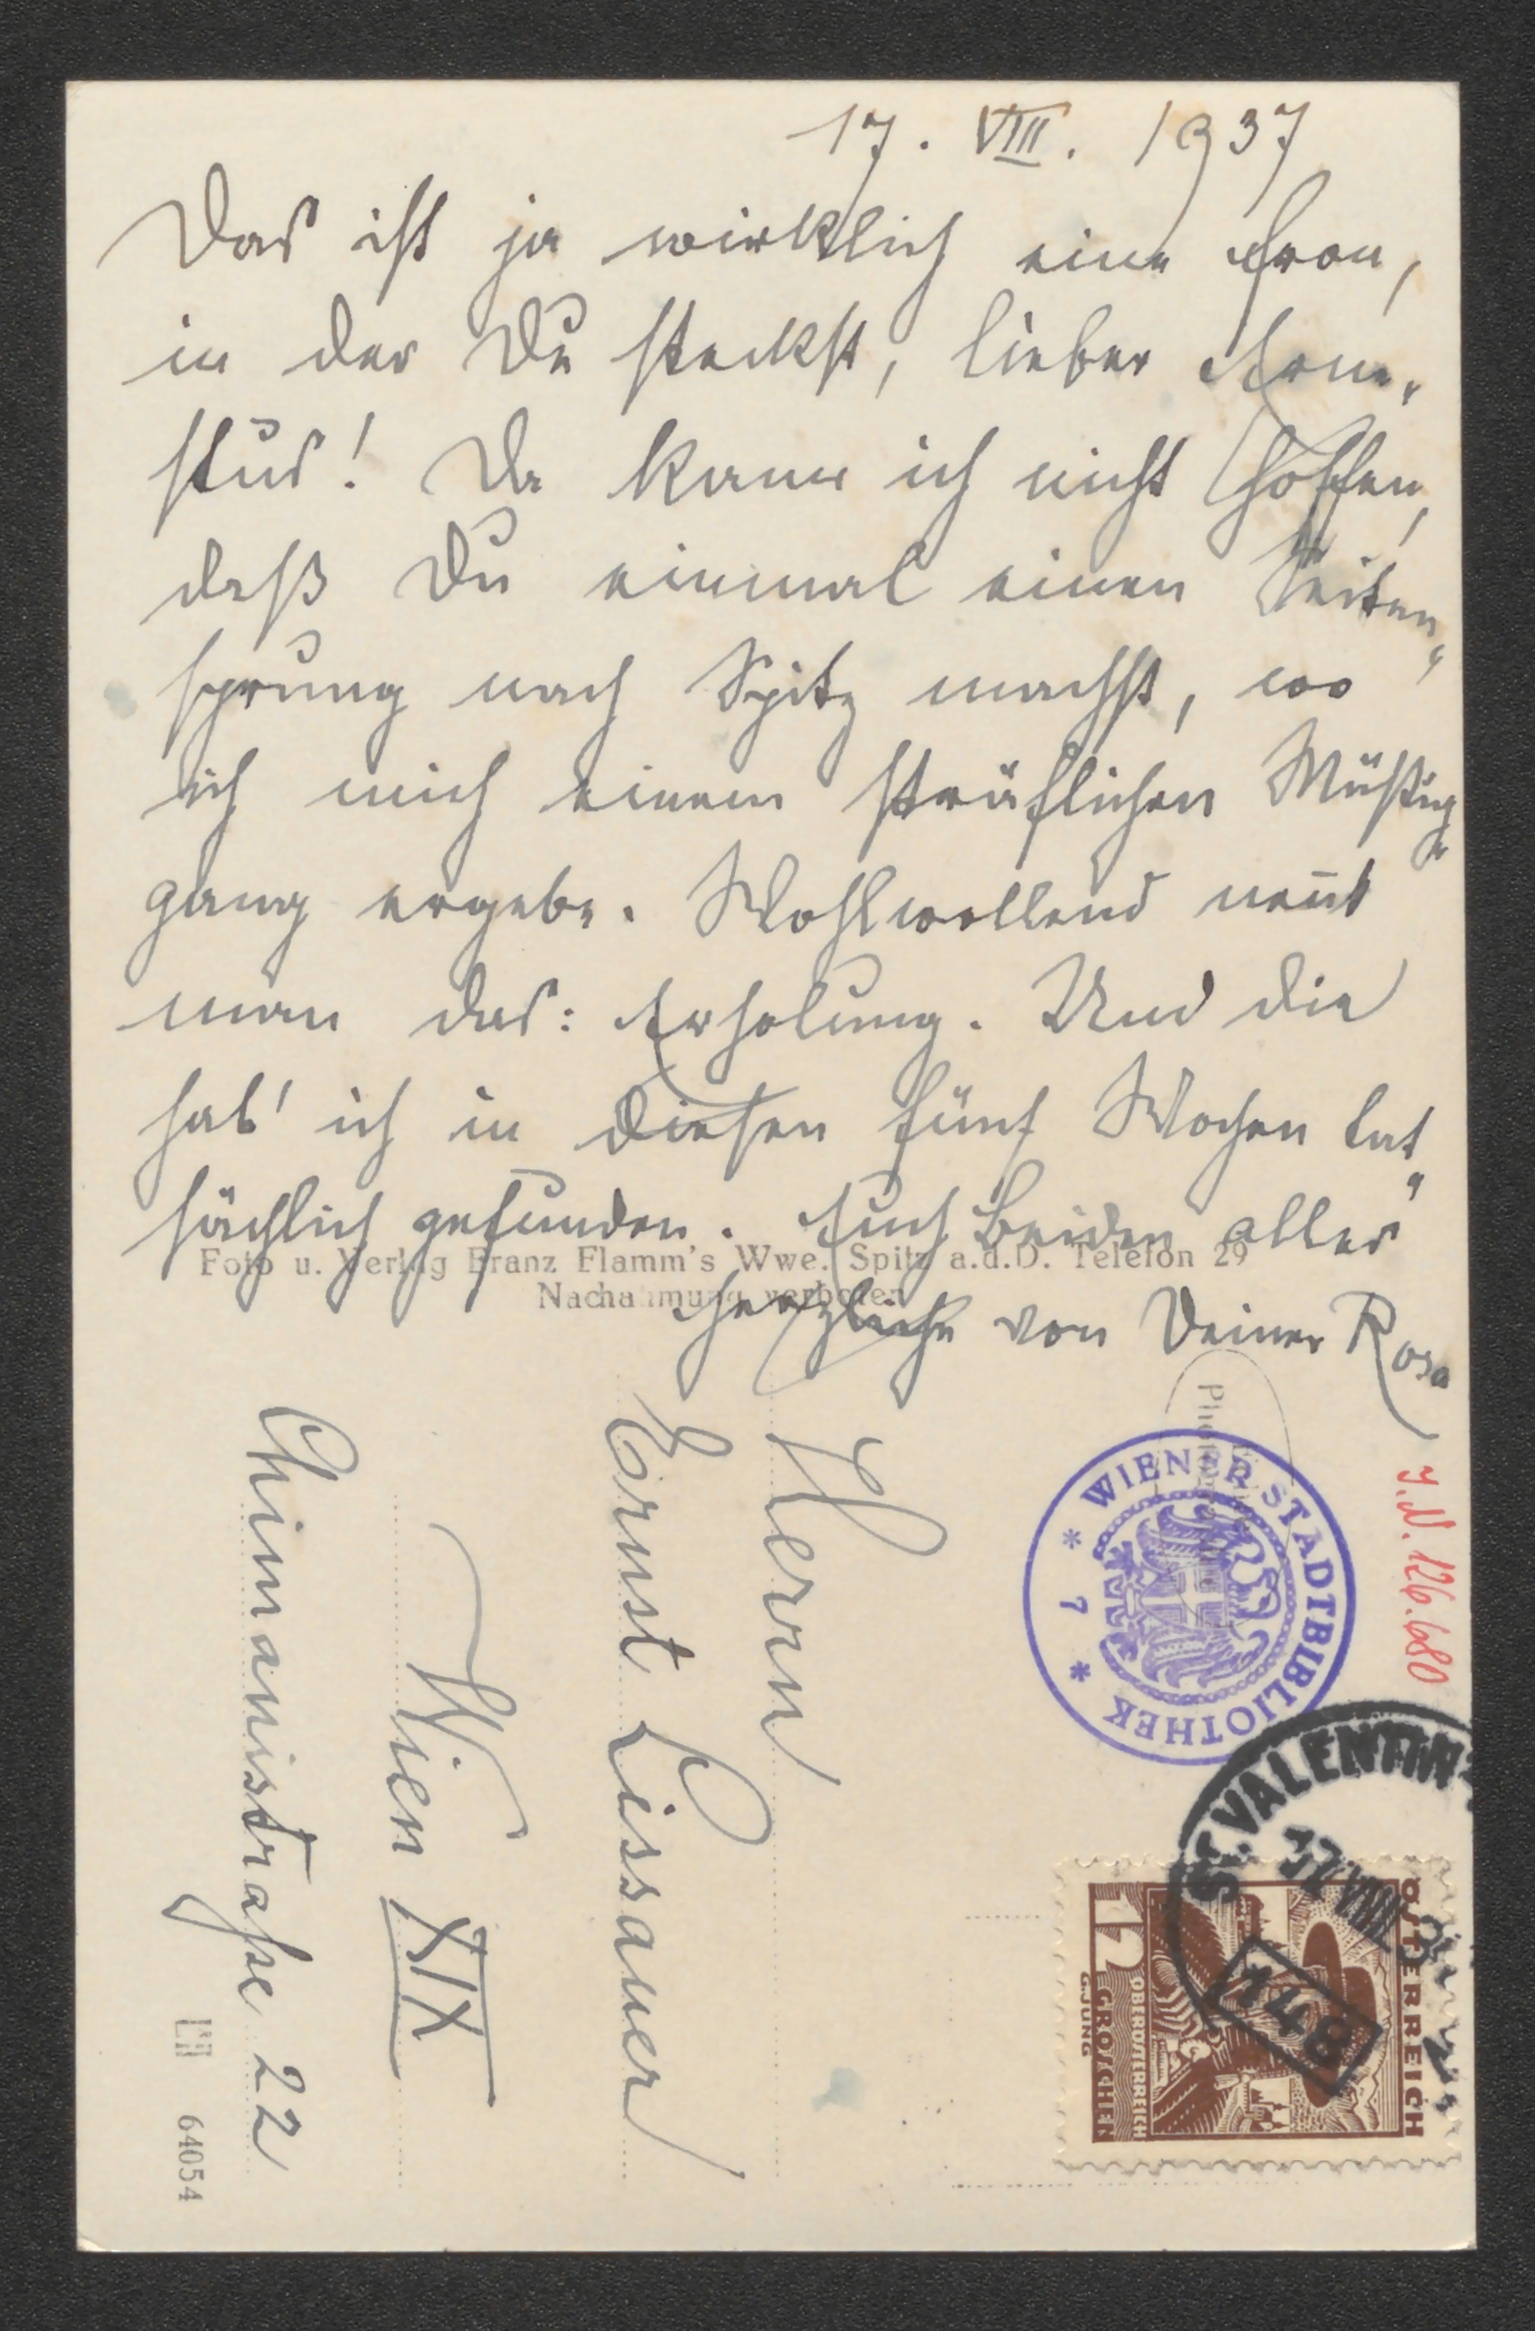 17. VIII. 1937
Das ist ja wirklich eine Fron,
in der Du steckst, lieber Erne-
stus! Da kann ich nicht hoffen,
daß Du einmal einen Seiten-
sprung nach Spitz machst, wo
ich mich einem sträflichen Müßig-
gang ergebe. Wohlwollend nen̄t
man das: Erholung. Und die
hab' ich in diesen fünf Wochen tat-
sächlich gefunden. Euch beiden aller-
herzlichst von Deiner Rosa
Foto u. Verlag Franz Flamm's Wwe. Spitz a.d.D. Telefon 29
Nachahmung verboten
Herrn
Ernst Lissauer
Wien XIX
Chimanistraße 22
64054
WIENER STADTBIBLIOTHEK
* 7 *
J.N. 126.680
ST. VALENTIN
148
ÖSTERREICH
12
OBERÖSTERREICH
GROSCHEN
G.JUNG